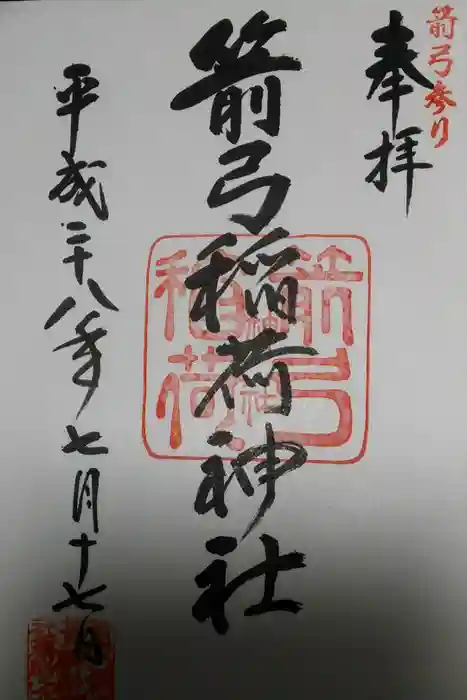 箭弓参り
奉拝
箭弓稲荷神社
箭弓稲荷神社
平成二十八年七月十七日